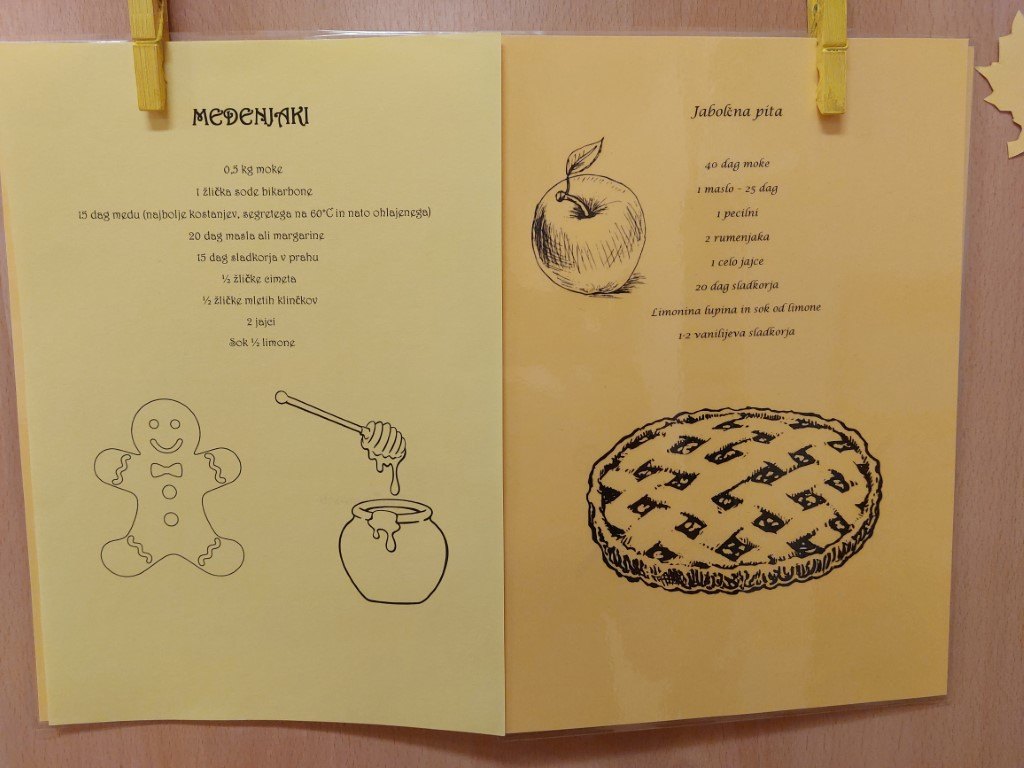 MEDENJAKI
0,5 kg moke
1 žlička sode bikarbone
15 dag medu (najbolje kostanjev, segretega na 60°C in nato ohlajenega)
20 dag masla ali margarine
15 dag sladkorja v prahu
½ žličke cimeta
½ žličke mletih klinčkov
2 jajci
Sok ½ limone
Jabolčna pita
40 dag moke
1 maslo - 25 dag
1 pecilni
2 rumenjaka
1 celo jajce
20 dag sladkorja
Limonina lupina in sok od limone
1-2 vanilijeva sladkorja